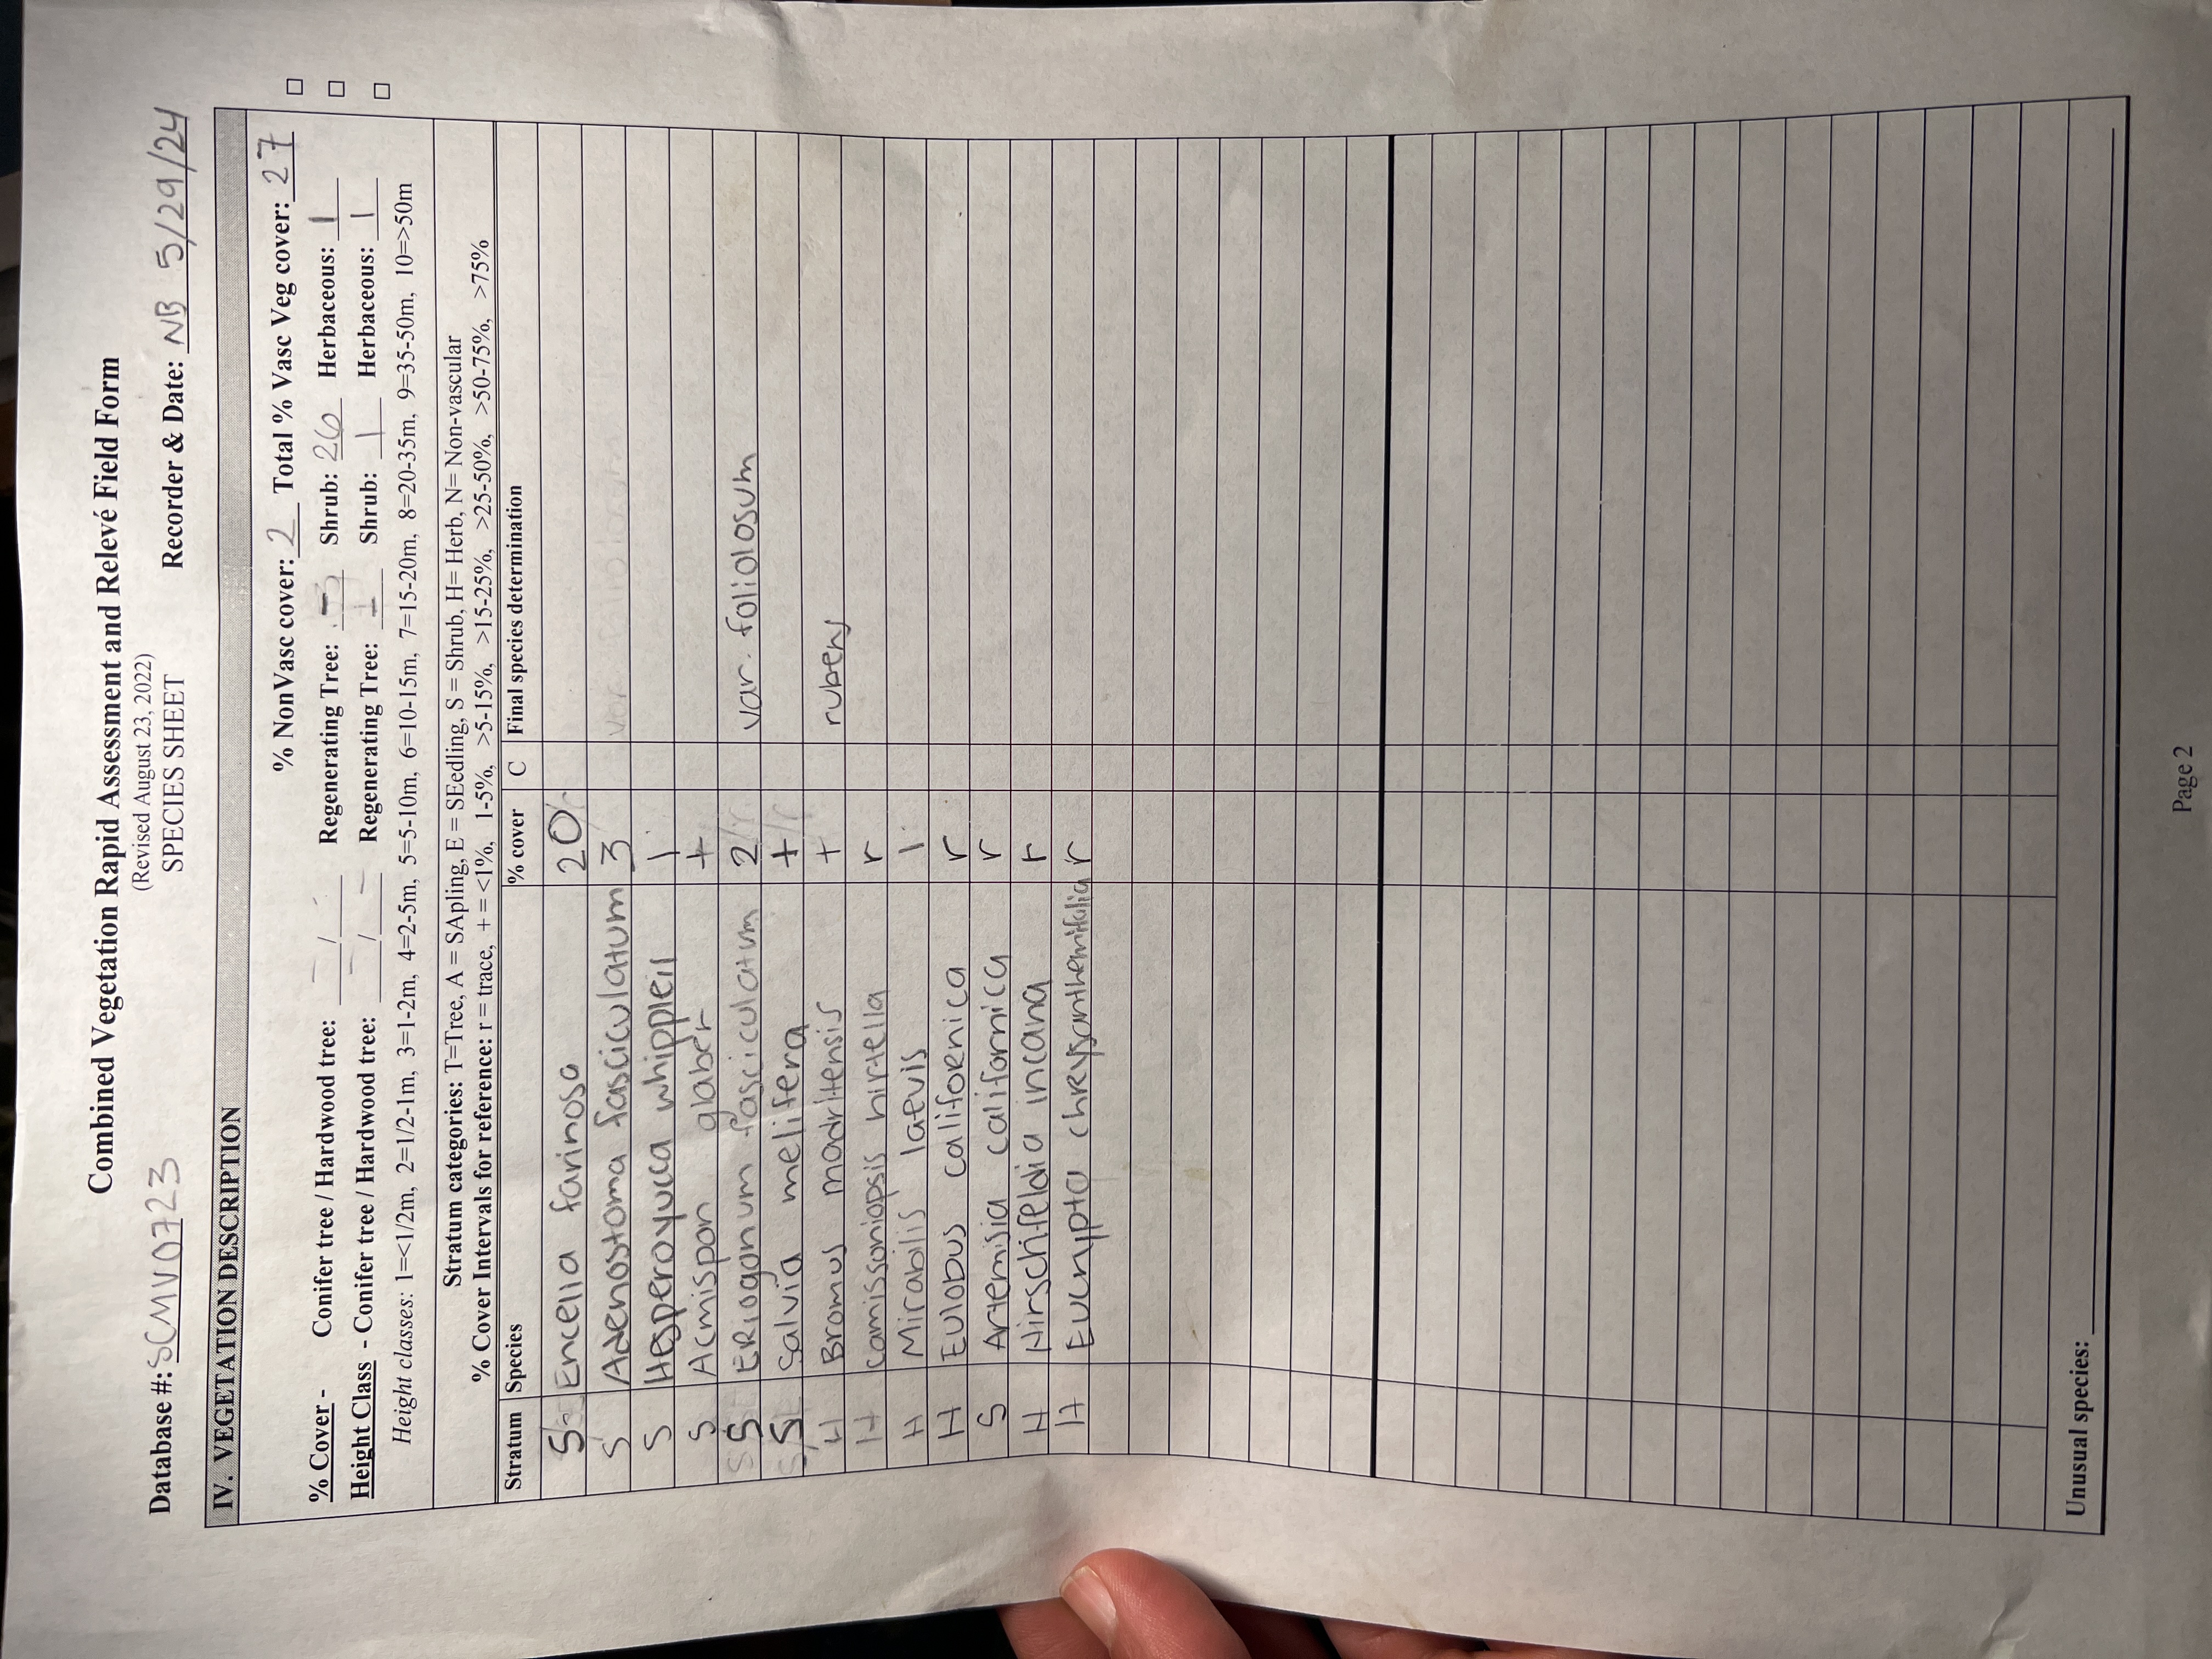 Combined Vegetation Rapid Assessment and Relevé Field Form
(Revised August 23, 2022)
SPECIES SHEET
Database #: SCMV0723 Recorder & Date: NB 5/29/24
IV. VEGETATION DESCRIPTION
% NonVasc cover: 2 Total % Vasc Veg cover: 27
% Cover - Conifer tree / Hardwood tree: - / - Regenerating Tree: - Shrub: 26 Herbaceous: 1
Height Class - Conifer tree / Hardwood tree: - / - Regenerating Tree: - Shrub: 1 Herbaceous: 1
Height classes: 1=<1/2m, 2=1/2-1m, 3=1-2m, 4=2-5m, 5=5-10m, 6=10-15m, 7=15-20m, 8=20-35m, 9=35-50m, 10=>50m
Stratum categories: T=Tree, A = SApling, E = SEedling, S = Shrub, H= Herb, N= Non-vascular
% Cover Intervals for reference: r = trace, + = <1%, 1-5%, >5-15%, >15-25%, >25-50%, >50-75%, >75%
Stratum Species % cover C Final species determination
S Encelia farinosa 20
S Adenostoma fasciculatum 3
S Hesperoyucca whipplei 1
S Acmispon glaber +
S Eriogonum fasciculatum 2 var. foliolosum
S Salvia melifera +
H Bromus madritensis + rubens
H Camissoniopsis hirtella r
H Mirabilis laevis 1
H Eulobus californica r
S Artemisia californica r
H Hirschfeldia incana r
H Eucrypta chrysanthemifolia r
Unusual species:
Page 2